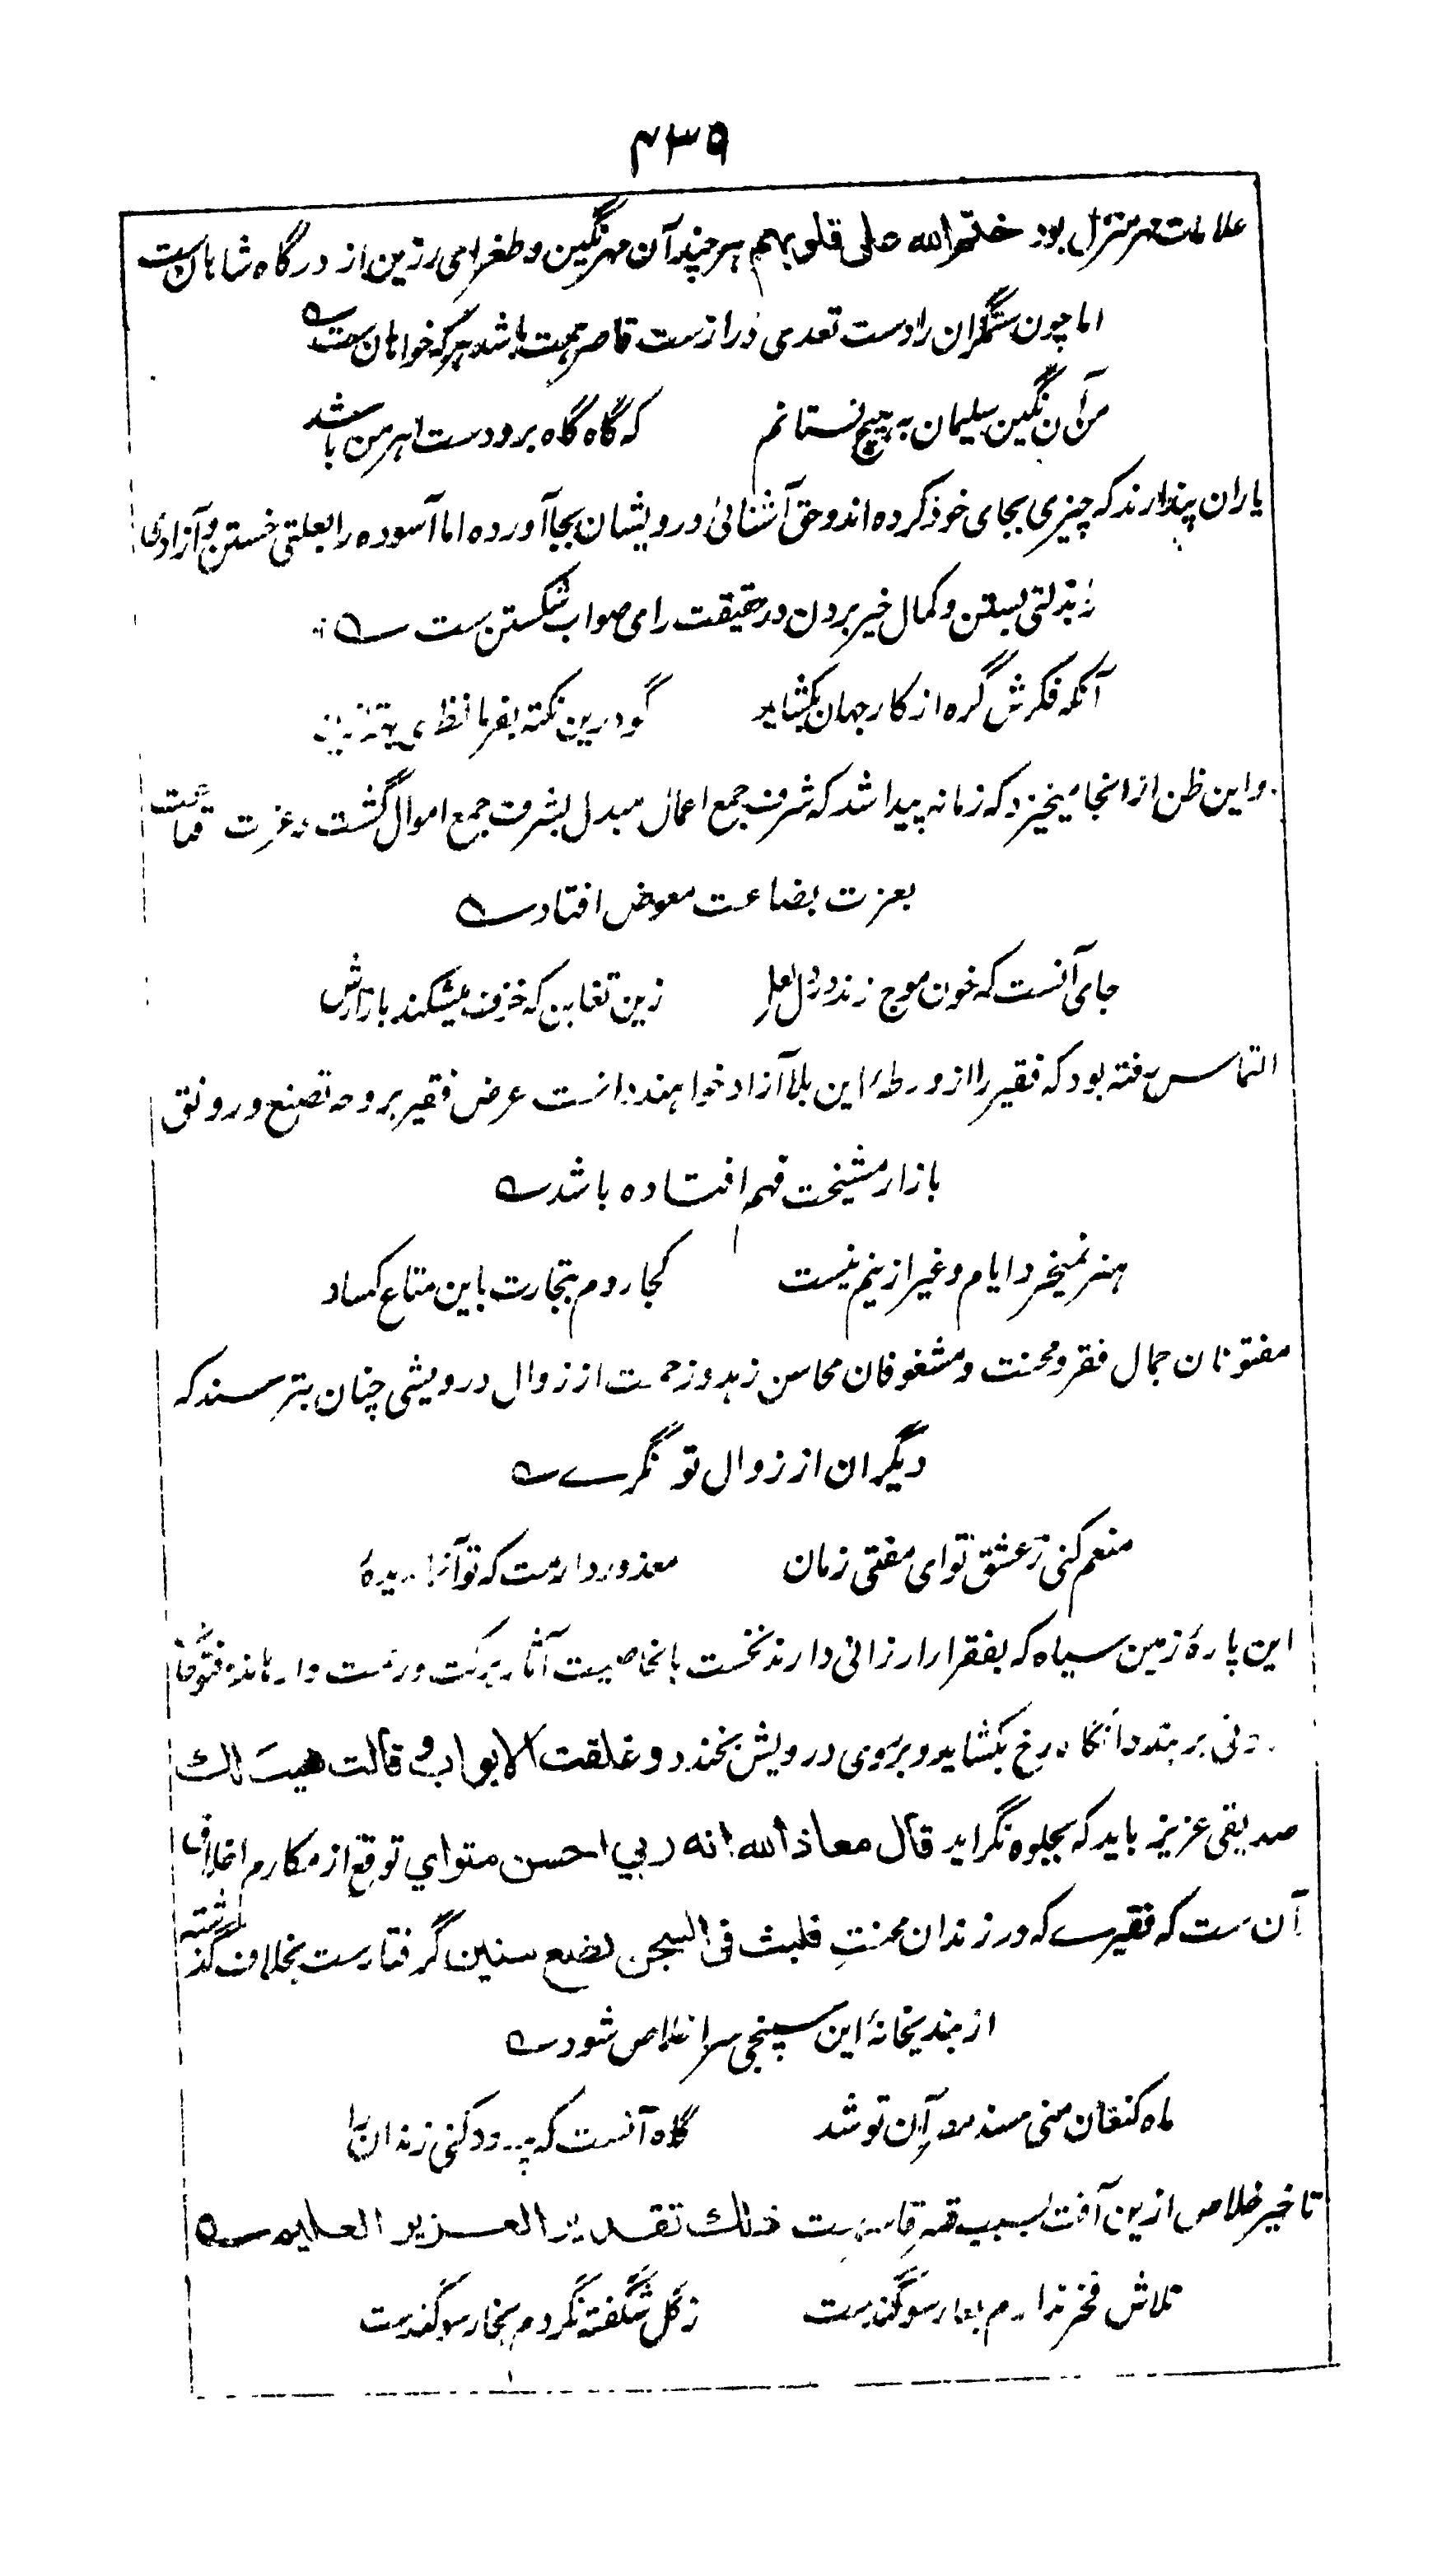 ۴۳۹
علامت مهر منزل بود ختم الله علی قلوبهم هر چند آن مهر نگین و طغرای رزین از درگاه شاهان ست
اما چون ستمگران را دست تعدی دراز ست قاصر همت باشد هر که خواهان ست
من آن نگین سلیمان به هیچ نستانم که گاه گاه برو دست اهرمن باشد
یاران پندارند که چیزی بجای خود کرده اند و حق آشنائی درویشان بجا آورده اما آسوده را بعلتی خستن و آزادی
بذلتی بستن و کمال خیر بردن در حقیقت رای صواب شکستن ست
آنکه فکرش گره از کار جهان بکشاید گو درین نکته بفرما نظری بهتر ازین
و این ظن از انجا میخیزد که زمانه پیدا شد که شرف جمع اعمال مبدل بشرف جمع اموال گشت و عزت قناعت
بعزت بضاعت معوض افتاد
جای آنست که خون موج زند در دل لعل زین تغابن که خزف میشکند بازارش
التماس رفته بود که فقیر را از ورطهٔ این بلا آزاد خواهند دانست عرض فقیر بر وجه تصنع و رونق
بازار مشیخت فهم افتاده باشد
هنر نمیخرد ایام و غیر ازینم نیست کجا روم بتجارت باین متاع کساد
مفتونان جمال فقر و محنت و مشغوفان محاسن زهد و زحمت از زوال درویشی چنان بترسند که
دیگران از زوال تونگرے
منعم کنی ز عشق تو ای مفتی زمان معذور دارمت که تو آنرا ندیدهٔ
این پارهٔ زمین سیاه که بفقرا ارزانی دارند نخست بالخاصیت آثار برکت و
بر بندد آنگاه رخ بکشاید و بروی درویش بخندد و غلقت الابواب و قالت هیت لك
صدیقی عزیز باید که بجلوه نگراید قال معاذ الله انه ربي احسن مثواي توقع از مکارم اخلاق
آن ست که فقیرے که در زندان محنتِ فلبث فی السجن بضع سنین گرفتار ست بخلاف گذشته
از بندیخانهٔ این سپنجی سرا خلاص شود
ماه کنعان منی مسند مصر آن تو شد گاه آنست که پدرود کنی زندان را
تاخیر خلاص ازین آفت بسبب ذلك تقدیر العزیز العلیم
تلاش فخر ندارم بعار سوگند ست ز گل شگفته نگردم بخار سوگند ست